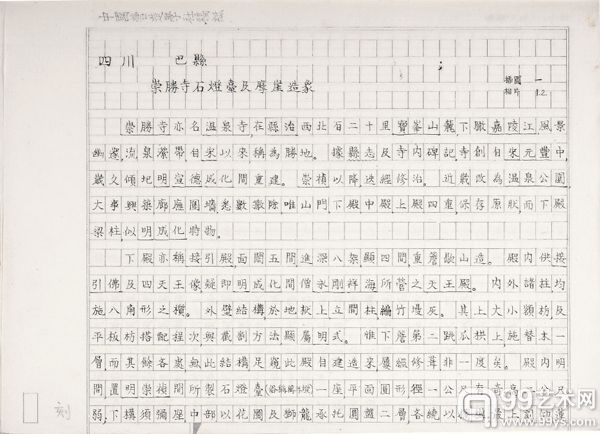 四川 巴縣
崇勝寺石燈臺及摩崖造象
插圖 一
相片 1.2.
崇勝寺亦名溫泉寺在縣治西北百二十里寶峯山麓下瞰嘉陵江風景
幽邃流泉縈帶自宋以來稱為勝地。據縣志及寺內碑記寺創自宋元豐中
歲久傾圮明宣德成化間重建。崇禎以降迭經修治。近歲改為溫泉公園
大事興築廊廡園牆悉數撤除唯山門下殿中殿上殿四重保存原狀而下殿
梁柱似明成化時物
下殿亦稱接引殿面闊五間進深八架顯四間重簷歇山造。殿內供接
引佛及四天王像疑即明成化間僧永剛祥海所營之天王殿。內外諸柱均
施八角形之櫍。外壁結構於地栿上立間柱編竹墁灰。其上大小額枋及
平板枋搭配程次與截割方法顯屬明式。惟下簷第二跳瓜栱上施替木一
層而其餘各處無此結構足窺此殿自建造來屢經修葺非一度矣。殿內明
間置明崇禎間所製石燈臺(俗稱萬年燈)一座平面圓形徑一公尺有奇高二公尺
弱下構須彌座中部以花圈及獅龍承托圓盤二層各繞以
刻
99艺术网